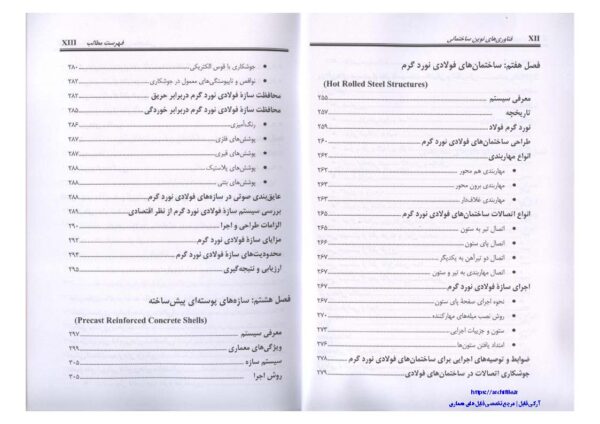 XII فناوری‌های نوین ساختمانی
فصل هفتم: ساختمان‌های فولادی نورد گرم
(Hot Rolled Steel Structures)
معرفی سیستم ۲۵۵
تاریخچه ۲۵۷
نورد گرم فولاد ۲۵۹
طراحی ساختمان‌های فولادی نورد گرم ۲۶۰
انواع مهاربندی ۲۶۲
• مهاربندی هم محور ۲۶۲
• مهاربندی برون محور ۲۶۳
• مهاربندی غلاف‌دار ۲۶۳
انواع اتصالات ساختمان‌های فولادی نورد گرم ۲۶۵
• اتصال تیر به ستون ۲۶۵
• اتصال پای ستون ۲۶۶
• اتصال دو تیرآهن به یکدیگر ۲۶۷
• اتصال مهاربندی به تیر و ستون ۲۶۷
اجرای سازهٔ فولادی نورد گرم ۲۶۷
• نحوه اجرای صفحهٔ پای ستون ۲۶۷
• روش نصب میله‌های مهارکننده ۲۷۰
• ستون و جزییات اجرایی ۲۷۳
• امتداد یافتن ستون‌ها ۲۷۶
ضوابط و توصیه‌های اجرایی برای ساختمان‌های فولادی نورد گرم ۲۷۸
جوشکاری اتصالات در ساختمان‌های فولادی ۲۷۹
https://archfile.ir
آرکی فایل | مرجع تخصصی فایل های معماری
فهرست مطالب XIII
• جوشکاری با قوس الکتریکی ۲۸۰
• نواقص و ناپیوستگی‌های معمول در جوشکاری ۲۸۳
محافظت سازهٔ فولادی نورد گرم دربرابر حریق ۲۸۳
محافظت سازهٔ فولادی نورد گرم دربرابر خوردگی ۲۸۵
• رنگ‌آمیزی ۲۸۶
• پوشش‌های فلزی ۲۸۷
• پوشش‌های قیری ۲۸۷
• پوشش‌های پلاستیک ۲۸۸
• پوشش‌های بتنی ۲۸۸
عایق‌بندی صوتی در سازه‌های فولادی نورد گرم ۲۸۸
بررسی سیستم سازهٔ فولادی نورد گرم از نظر اقتصادی ۲۸۹
الزامات طراحی و اجرا ۲۹۰
مزایای سازهٔ فولادی نورد گرم ۲۹۲
محدودیت‌های سازهٔ فولادی نورد گرم ۲۹۴
ارزیابی و نتیجه‌گیری ۲۹۵
فصل هشتم: سازه‌های پوسته‌ای پیش‌ساخته
(Precast Reinforced Concrete Shells)
معرفی سیستم ۲۹۷
ویژگی‌های معماری ۲۹۹
سیستم سازه ۳۰۵
روش اجرا ۳۰۵